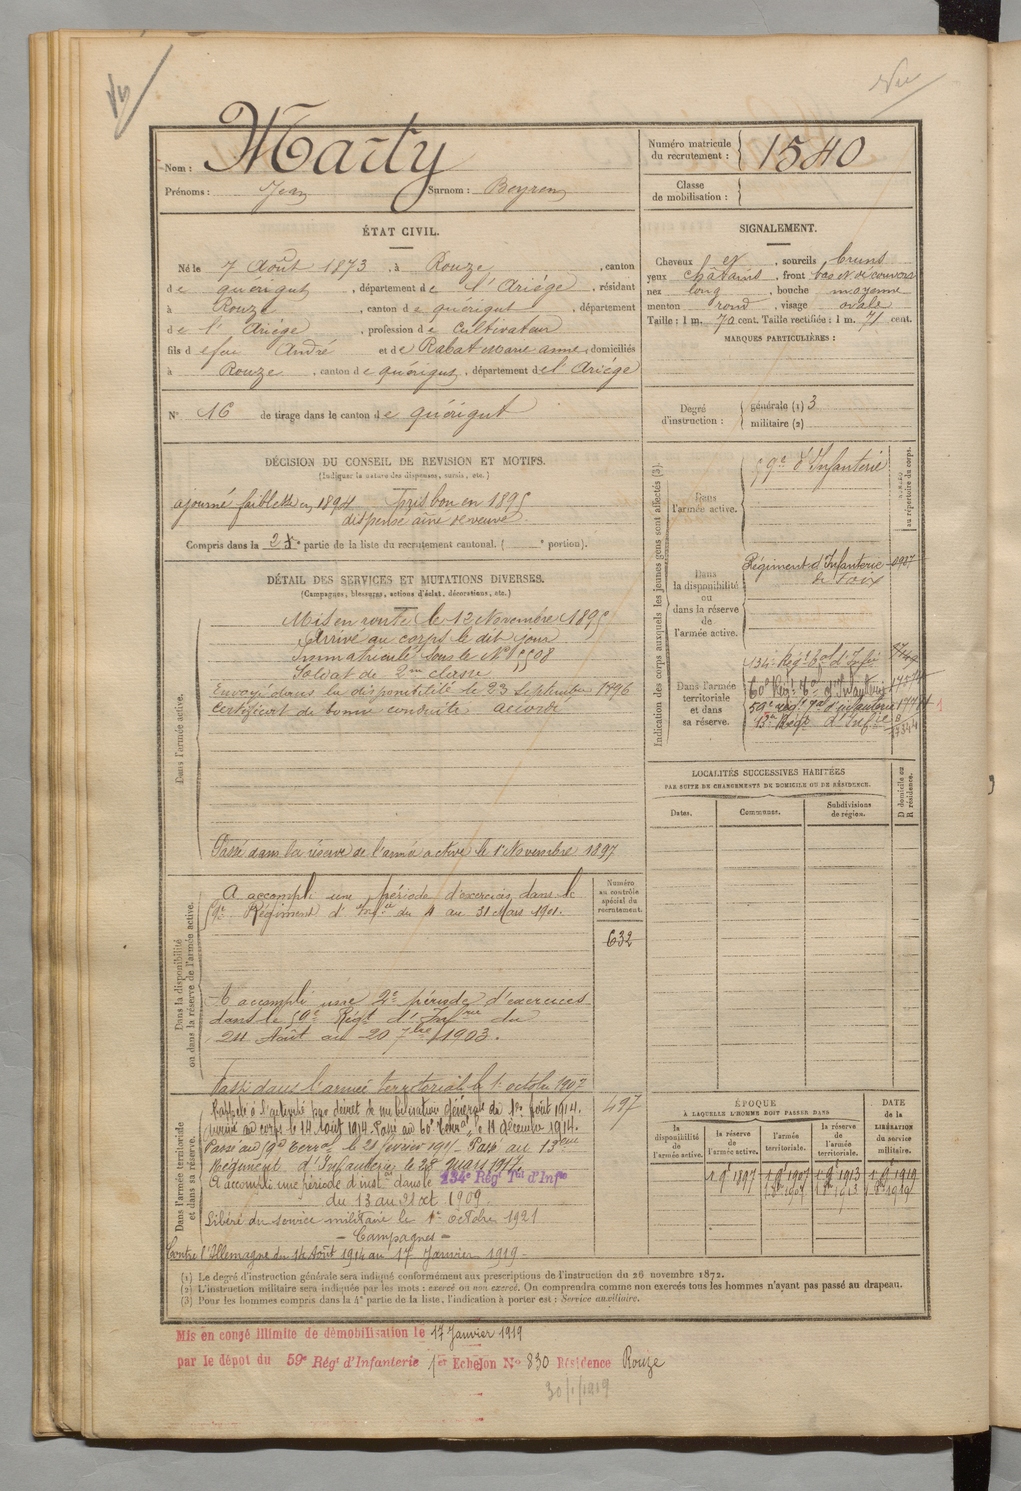 Vu
Nom : Marty
Prénoms : Jean Surnom : Beyren
Numéro matricule du recrutement : 1540
Classe de mobilisation :
ÉTAT CIVIL.
Né le 7 Août 1873, à Rouze, canton
de quérigut, département de l'Ariége, résidant
à Rouze, canton de quérigut, département
de l'Ariége, profession de cultivateur
fils d efeu André et de Rabat Marie anne, domiciliés
à Rouze, canton de quérigut, département de l'Ariége
N° 16 de tirage dans le canton de quérigut
SIGNALEMENT.
Cheveux et, sourcils bruns
yeux châtains, front bas et découvert
nez long, bouche moyenne
menton rond, visage ovale
Taille : 1 m. 70 cent. Taille rectifiée : 1 m. 71 cent.
MARQUES PARTICULIÈRES :
Degré d'instruction : générale (1) 3
militaire (2)
DÉCISION DU CONSEIL DE REVISION ET MOTIFS.
(Indiquer la nature des dispenses, sursis, etc.)
ajourné faiblesse en 1894 pris bon en 1895
dispensé aîné de veuve.
Compris dans la 2e partie de la liste du recrutement cantonal. ( e portion).
DÉTAIL DES SERVICES ET MUTATIONS DIVERSES.
(Campagnes, blessures, actions d'éclat, décorations, etc.)
Dans l'armée active.
Mis en route le 12 Novembre 1895
Arrivé au corps le dit jour
Immatriculé sous le N° 5508
Soldat de 2me classe
Envoyé dans la disponibilité le 23 Septembre 1896
Certificat de bonne conduite accordé
Passé dans la réserve de l'armée active le 1er Novembre 1897
Dans la disponibilité ou dans la réserve de l'armée active.
A accompli une période d'exercices dans le
59e Régiment d'Infie du 4 au 31 Mars 1901.
A accompli une 2e période d'exercices
dans le 59e Régt d'Infrie du
24 Août au 20 7bre 1903.
Passé dans l'armée territoriale le 1er octobre 1907
Numéro au contrôle spécial du recrutement.
632
497
Dans l'armée territoriale et dans sa réserve.
Rappelé à l'activité par décret de mobilisation générale du 1er Août 1914.
Arrivé au corps le 14 Août 1914. Passé au 60e Terral le 11 décembre 1914.
Passé au 59e Terral le 21 février 1915 Passé au 13eme
Régiment d'Infanterie le 28 mars 1917
A accompli une période d'inst. dans le 134e Régt Tal d'Infie
du 13 au 21 oct 1909
Libéré du service militaire le 1er octobre 1921
- Campagnes -
Contre l'Allemagne du 14 Août 1914 au 17 Janvier 1919 -
Indication des corps auxquels les jeunes gens sont affectés (3).
Dans l'armée active.
59e d'Infanterie
au répertoire du corps.
Dans la disponibilité ou dans la réserve de l'armée active.
Régiment d'Infanterie
de Foix
Dans l'armée territoriale et dans sa réserve.
134e Régt Tal d'Infie
60e Régt Tal d'Infanterie
59e régt Tal d'infanterie
13e Régt d'Infie
LOCALITÉS SUCCESSIVES HABITÉES
PAR SUITE DE CHANGEMENTS DE DOMICILE OU DE RÉSIDENCE.
Dates.
Communes.
Subdivisions de région.
D domicile ou R résidence.
ÉPOQUE
À LAQUELLE L'HOMME DOIT PASSER DANS
la disponibilité de l'armée active.
la réserve de l'armée active.
l'armée territoriale.
la réserve de l'armée territoriale.
DATE de la LIBÉRATION du service militaire.
(1) Le degré d'instruction générale sera indiqué conformément aux prescriptions de l'instruction du 26 novembre 1872.
(2) L'instruction militaire sera indiquée par les mots : exercé ou non exercé. On comprendra comme non exercés tous les hommes n'ayant pas passé au drapeau.
(3) Pour les hommes compris dans la 4e partie de la liste, l'indication à porter est : Service auxiliaire.
Mis en congé illimité de démobilisation le 17 Janvier 1919
par le dépôt du 59e Régt d'Infanterie 1er Echelon No 830 Résidence Rouze
30/1/1919